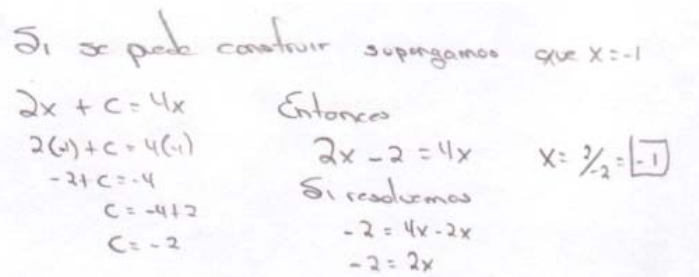 Si se puede construir supongamos que x=-1
2x + c = 4x
2(-1)+c = 4(-1)
-2+c = -4
c = -4+2
c = -2
Entonces
2x - 2 = 4x
Si resolvemos
-2 = 4x-2x
-2 = 2x
x = 2/-2 = -1